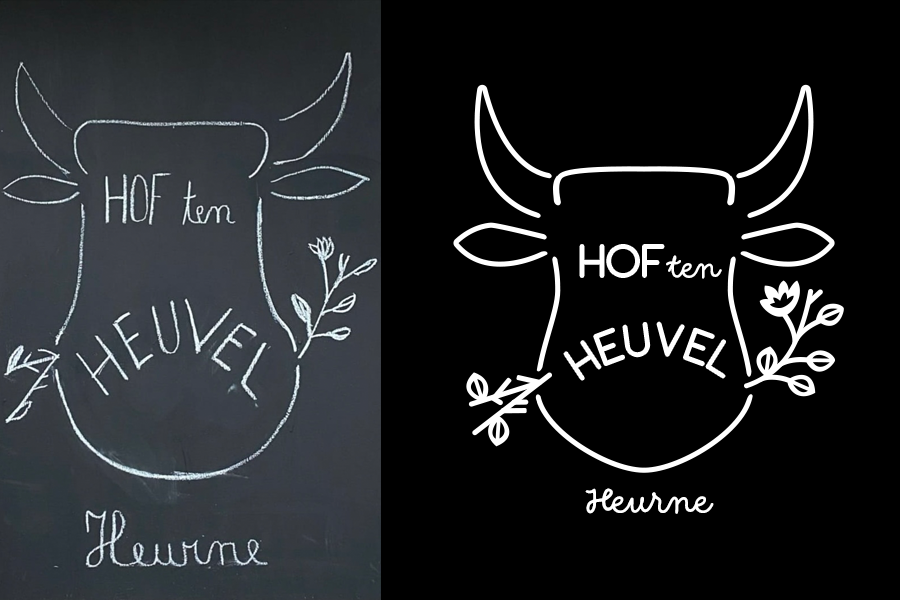 HOF ten
HEUVEL
Heurne
HOF ten
HEUVEL
Heurne